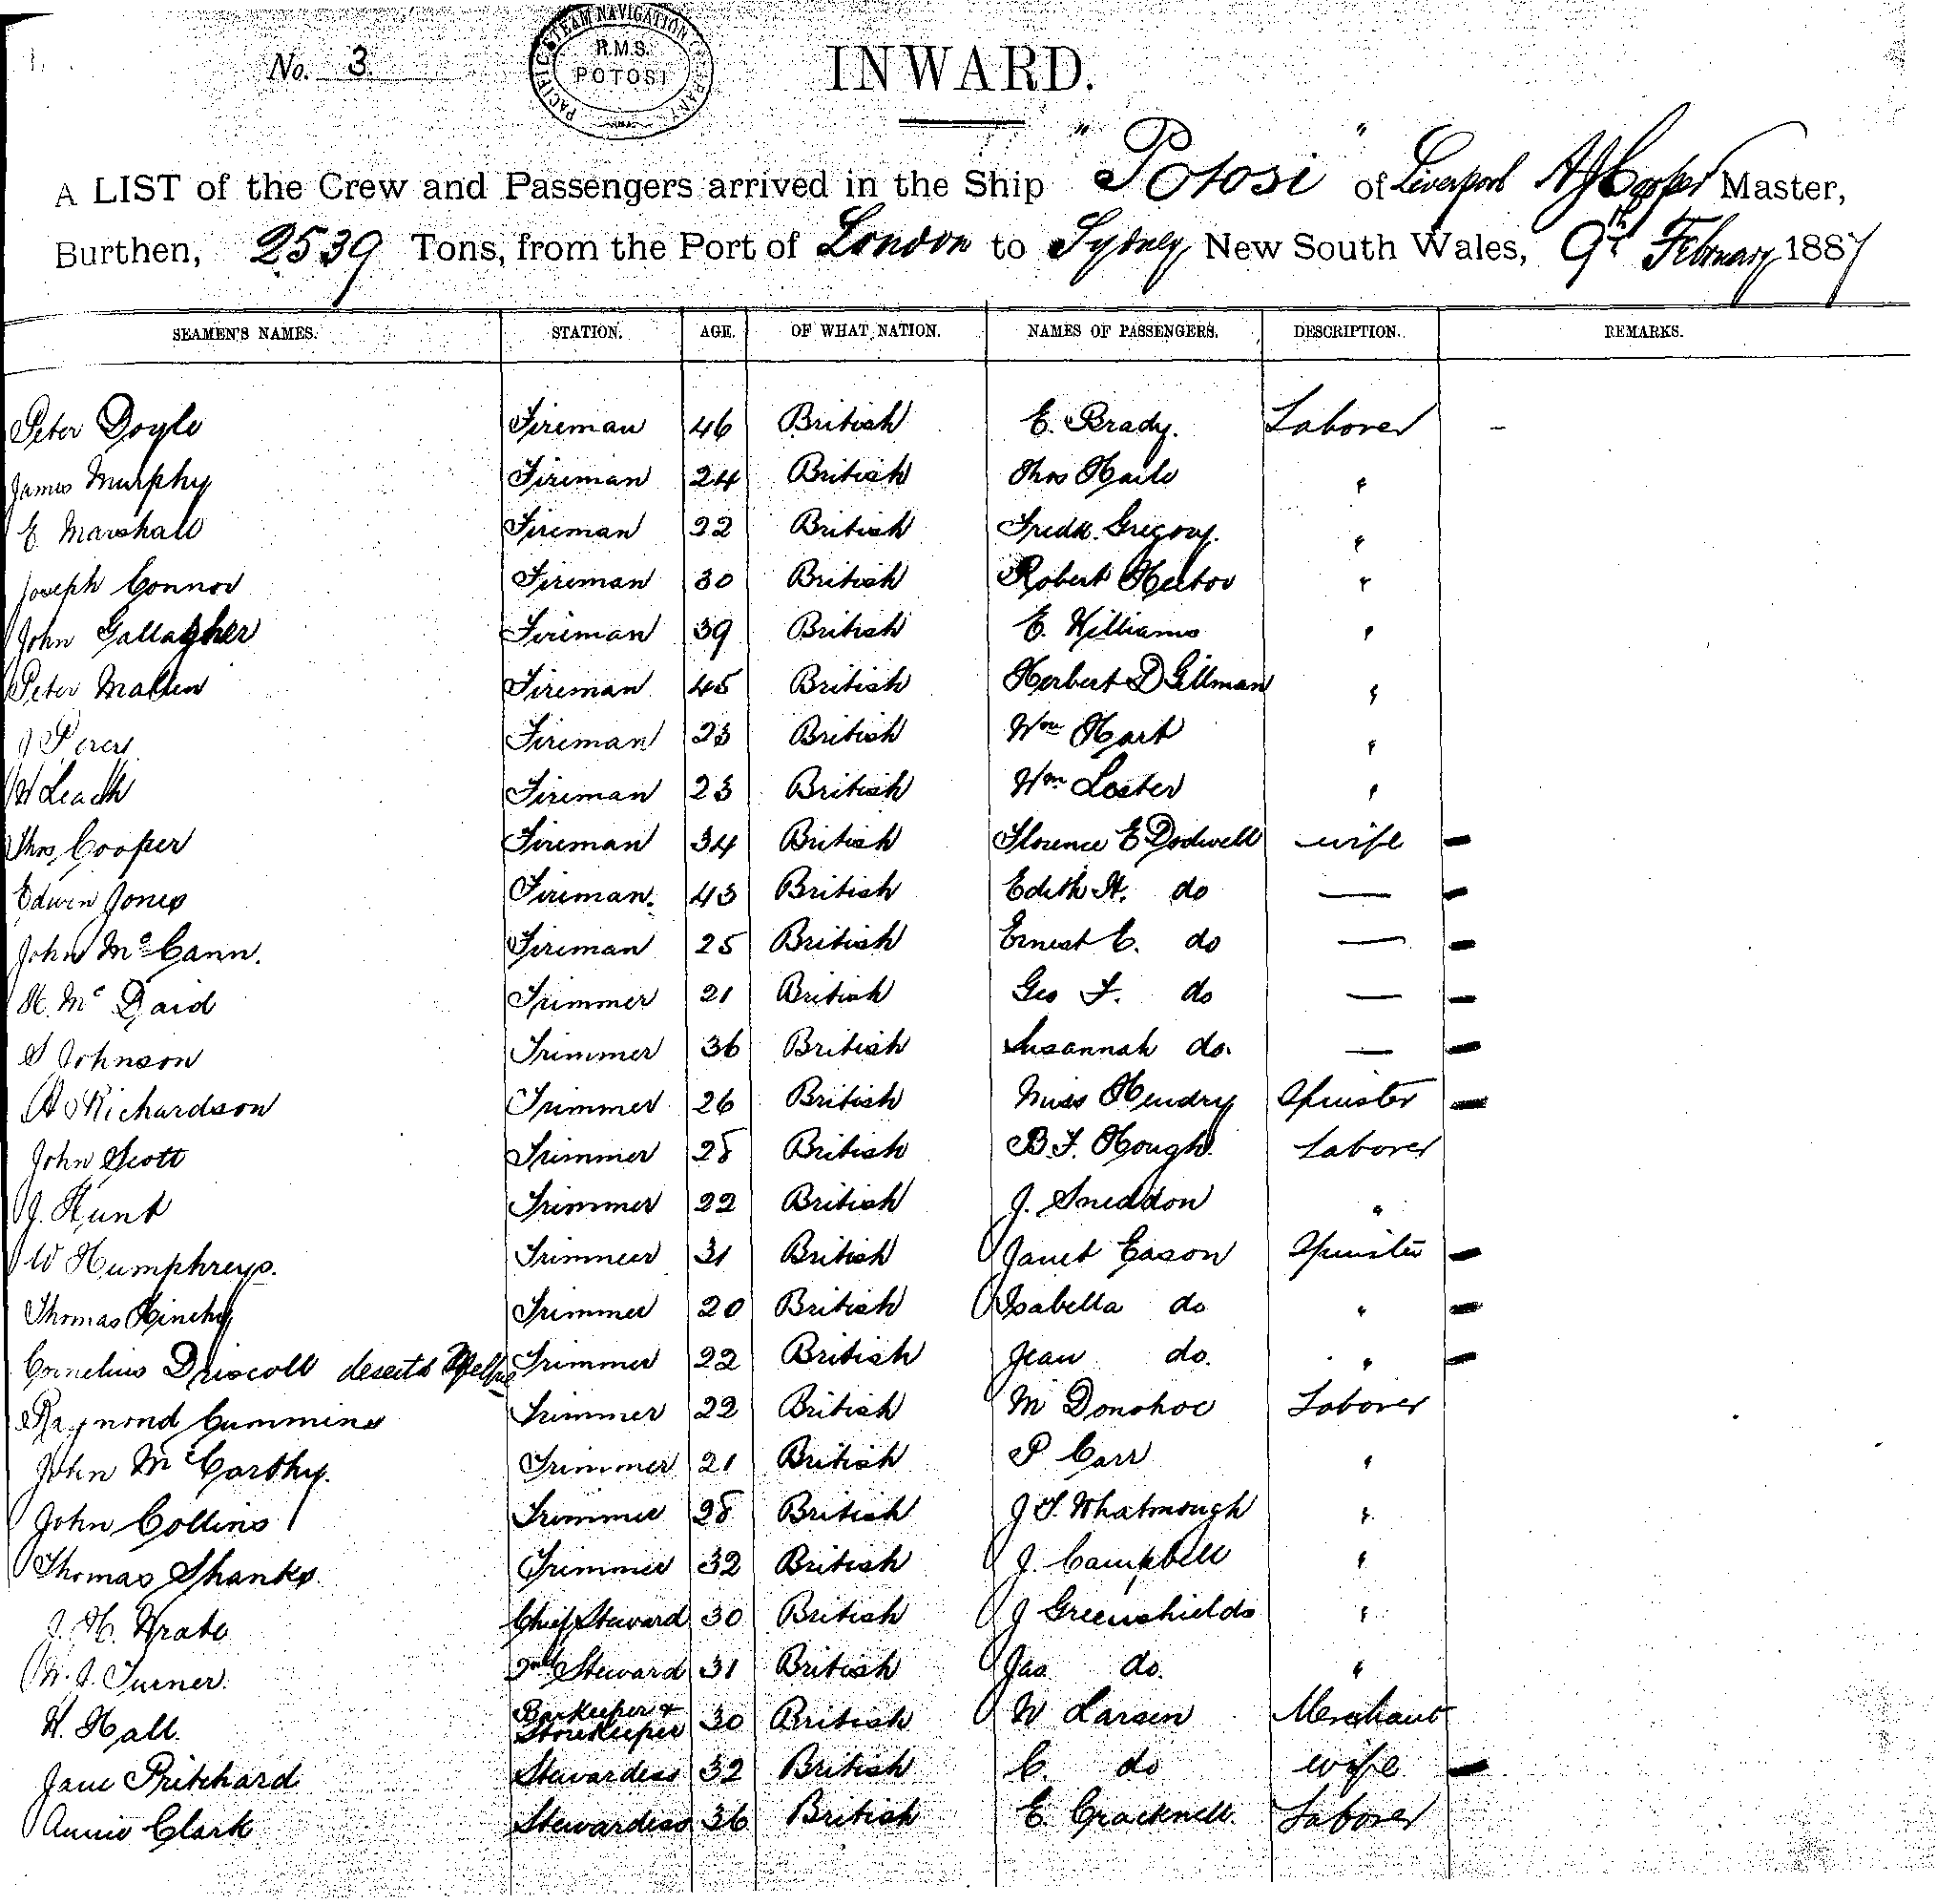 No. 3
PACIFIC STEAM NAVIGATION COMPANY
R.M.S.
POTOSI
INWARD.
A LIST of the Crew and Passengers arrived in the Ship "Potosi" of Liverpool A J Cooper Master,
Burthen, 2539 Tons, from the Port of London to Sydney New South Wales, 9th February 1887
SEAMEN'S NAMES. STATION. AGE. OF WHAT NATION. NAMES OF PASSENGERS. DESCRIPTION. REMARKS.
Peter Doyle Fireman 46 British E. Brady. Laborer -
James Murphy Fireman 24 British Thos Haile "
E Marshall Fireman 22 British Fredk. Gregory. "
Joseph Connor Fireman 30 British Robert Hector "
John Gallagher Fireman 39 British E. Williams "
Peter Fireman 45 British Herbert D Gillman "
J Percy Fireman 23 British Wm Hart "
W Leach Fireman 23 British Wm Lester "
Thos Cooper Fireman 34 British Florence E Dodwell wife -
Edwin Jones Fireman. 43 British Edith A. do — -
John McCann. Fireman 25 British Ernest C. do — -
H. Mc Daid Trimmer 21 British Geo F. do — -
S Johnson Trimmer 36 British Susannah do. — -
A Richardson Trimmer 26 British Miss Hendry Spinster -
John Scott Trimmer 28 British B. F. Hough. Laborer
J. Hunt Trimmer 22 British J. Sneddon "
W Humphreys. Trimmer 31 British Janet Eason Spinster -
Thomas Hinchy Trimmer 20 British Isabella do " -
Cornelius Driscoll deserted Trimmer 22 British Jean do. " -
Raymond Cummins Trimmer 22 British M Donohoe Laborer
John McCarthy. Trimmer 21 British P Carr "
John Collins Trimmer 28 British J. S. Whatmough "
Thomas Shanks. Trimmer 32 British J. Campbell "
J. H. Wrate Chief Steward 30 British J Greenshields "
W. J. Turner. 2nd Steward 31 British Jas do. "
W. Hall. Barkeeper & Storekeeper 30 British W Larsen Merchant
Jane Pritchard Stewardess 32 British C. do wife -
Annie Clark Stewardess 36 British E. Cracknell. Laborer